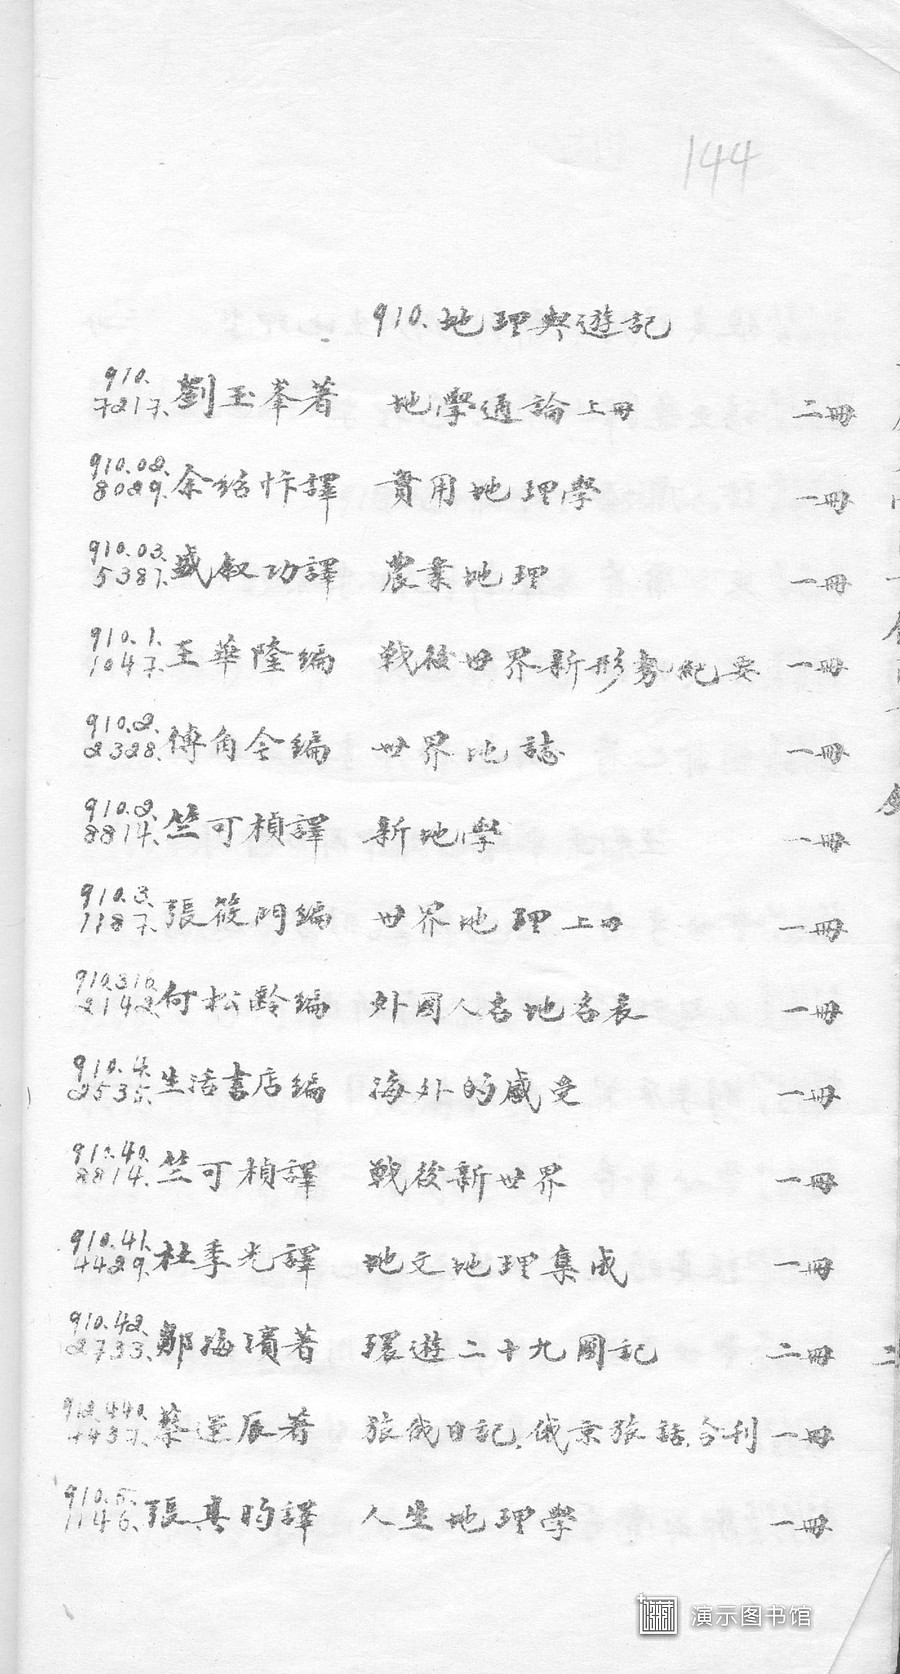 144
910. 地理與遊記
910.
7217. 劉玉峯著 地學通論上冊 二冊
910.02.
8029. 余紹忭譯 實用地理學 一冊
910.03.
5387. 盛叙功譯 農業地理 一冊
910.1.
1047. 王華隆編 戰後世界新形勢紀要 一冊
910.2.
2328. 傅角今編 世界地誌 一冊
910.2.
8814. 竺可楨譯 新地學 一冊
910.3.
1187. 張筱門編 世界地理上冊 一冊
910.316.
2142. 何松齡編 外國人名地名表 一冊
910.4.
2535. 生活書店編 海外的感受 一冊
910.40.
8814. 竺可楨譯 戰後新世界 一冊
910.41.
4429. 杜季光譯 地文地理集成 一冊
910.42.
2733. 鄒海濱著 環遊二十九國記 二冊
4437. 蔡運辰著 旅俄日記.俄京旅話.合刊 一冊
910.5.
1146. 張其昀譯 人生地理學 一冊
演示图书馆